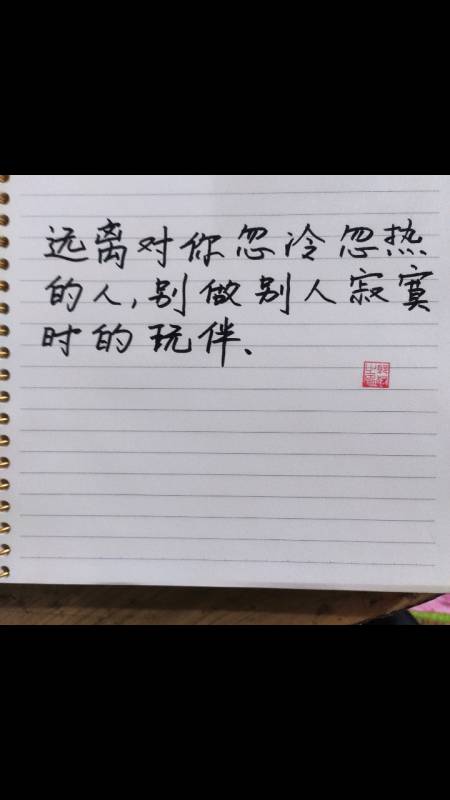 远离对你忽冷忽热
的人,别做别人寂寞
时的玩伴、